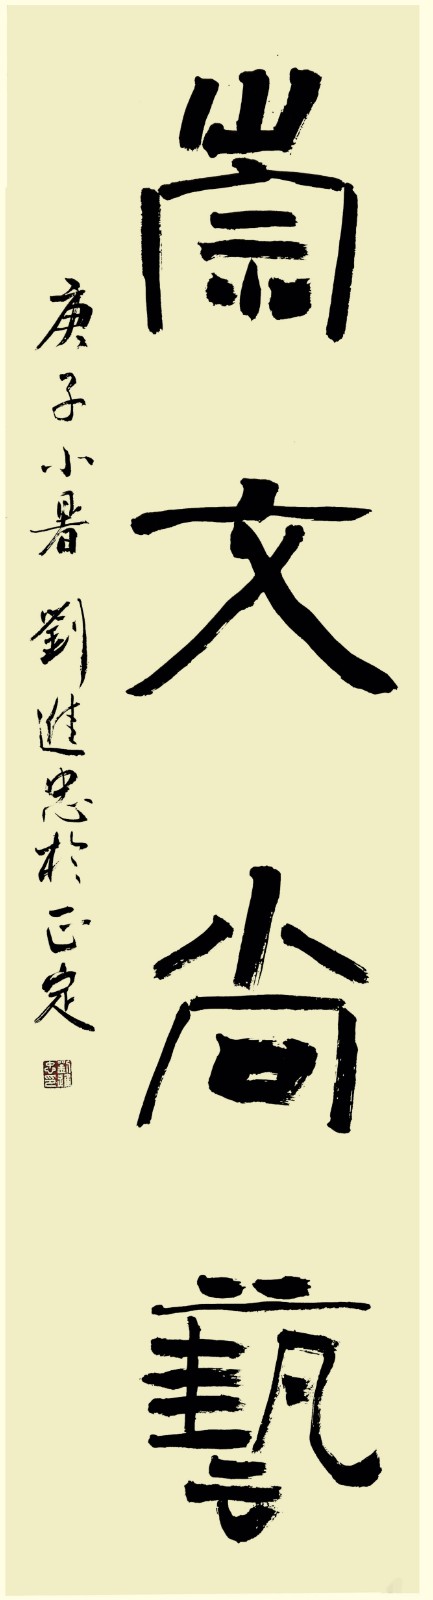 崇文尚藝
庚子小暑 劉進忠於正定